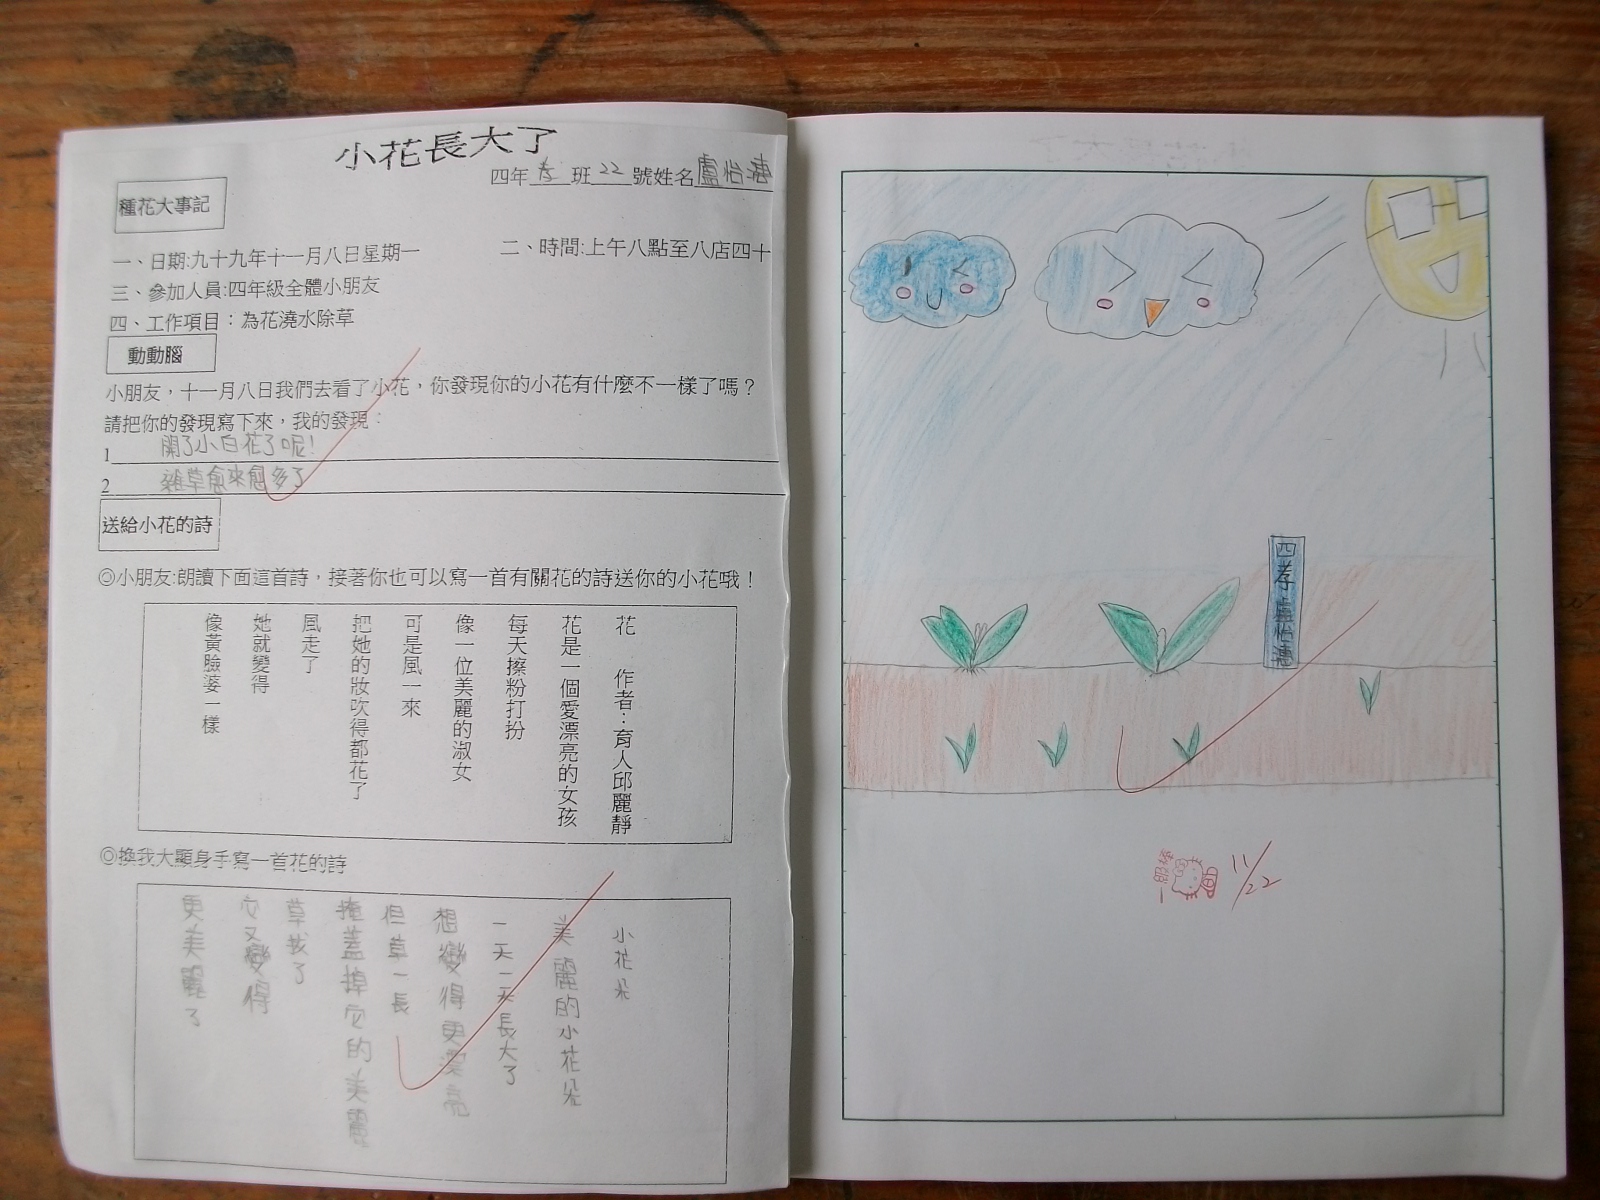 小花長大了
四年孝班22號姓名盧怡溱
種花大事記
一、日期:九十九年十一月八日星期一
二、時間:上午八點至八店四十
三、參加人員:四年級全體小朋友
四、工作項目：為花澆水除草
動動腦
小朋友，十一月八日我們去看了小花，你發現你的小花有什麼不一樣了嗎？
請把你的發現寫下來，我的發現：
1 開了小白花了呢！
2 雜草愈來愈多了
送給小花的詩
◎小朋友:朗讀下面這首詩，接著你也可以寫一首有關花的詩送你的小花哦！
花 作者：育人邱麗靜
花是一個愛漂亮的女孩
每天擦粉打扮
像一位美麗的淑女
可是風一來
把她的妝吹得都花了
風走了
她就變得
像黃臉婆一樣
◎換我大顯身手寫一首花的詩
小花朵
美麗的小花朵
一天一天長大了
想變得更漂亮
但草一長
掩蓋掉它的美麗
草拔了
它又變得
更美麗了
四孝盧怡溱
11/22